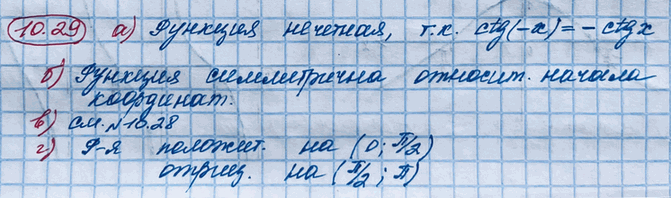 10.29 а) Функция нечетная, т.к. ctg(-x) = - ctgx
б) Функция симметрична относит. начала
координат.
в) см. №10.28
г) Ф-я положит. на (0; π/2)
отриц. на (π/2; π)